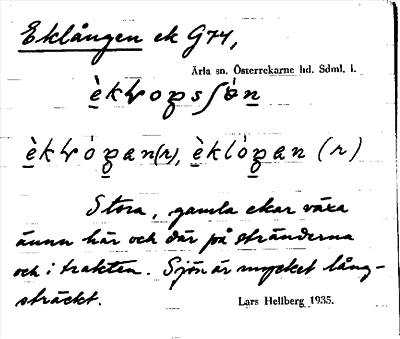 Eklången ek G74,
Ärla sn. Österrekarne hd. Sdml. l.
Stora, gamla ekar växa
ännu här och där på stränderna
och i trakten. Sjön är mycket lång-
sträckt.
Lars Hellberg 1935.